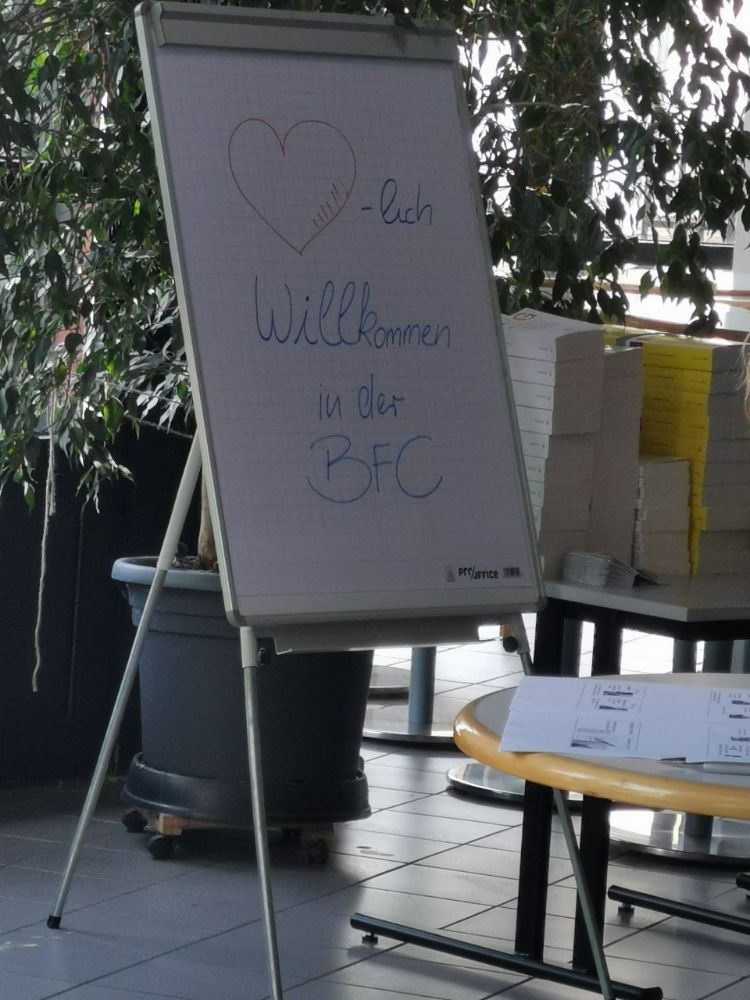 -lich
Willkommen
in der
BFC
PRO/OFFICE